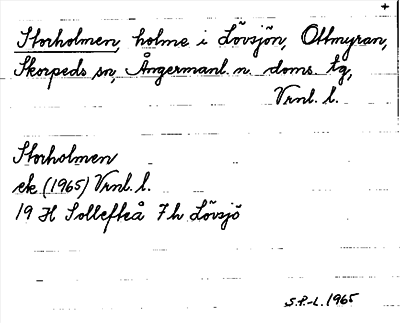 Storholmen, holme i Lövsjön, Ottmyran,
Skorpeds sn, Ångermanl. n. doms. tg,
Vrnl. l.
Storholmen
ek (1965) Vrnl. l.
19 H Sollefteå 7h Lövsjö
S.P.-L. 1965